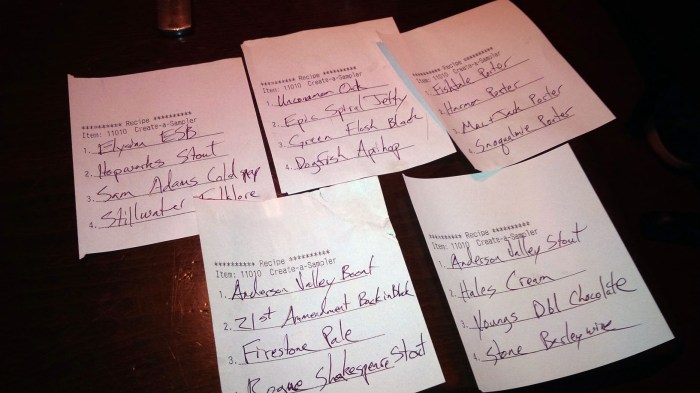 ********** Recipe **********
Item: 11010 Create-a-Sampler
1. Elysian ESB
2. Hopworks Stout
3. Sam Adams Cold
4. Stillwater Folklore
********** Recipe **********
Item: 11010 Create-a-Sampler
1. Uncommon Oak
2. Epic Spiral Jetty
3. Green Flash Black
4. Dogfish Aprihop
********** Recipe **********
Item: 11010 Create-a-Sampler
1. Fishtale Porter
2. Harmon Porter
3. Mac & Jack Porter
4. Snoqualmie Porter
********** Recipe **********
Item: 11010 Create-a-Sampler
1. Anderson Valley Boont
2. 21st Ammendment Back in Black
3. Firestone Pale
Rogue Shakespeare Stout
********** Recipe **********
Item: 11010 Create-a-Sampler
1. Anderson Valley Stout
2. Hales Cream
3. Youngs Dbl Chocolate
4. Stone Barleywine